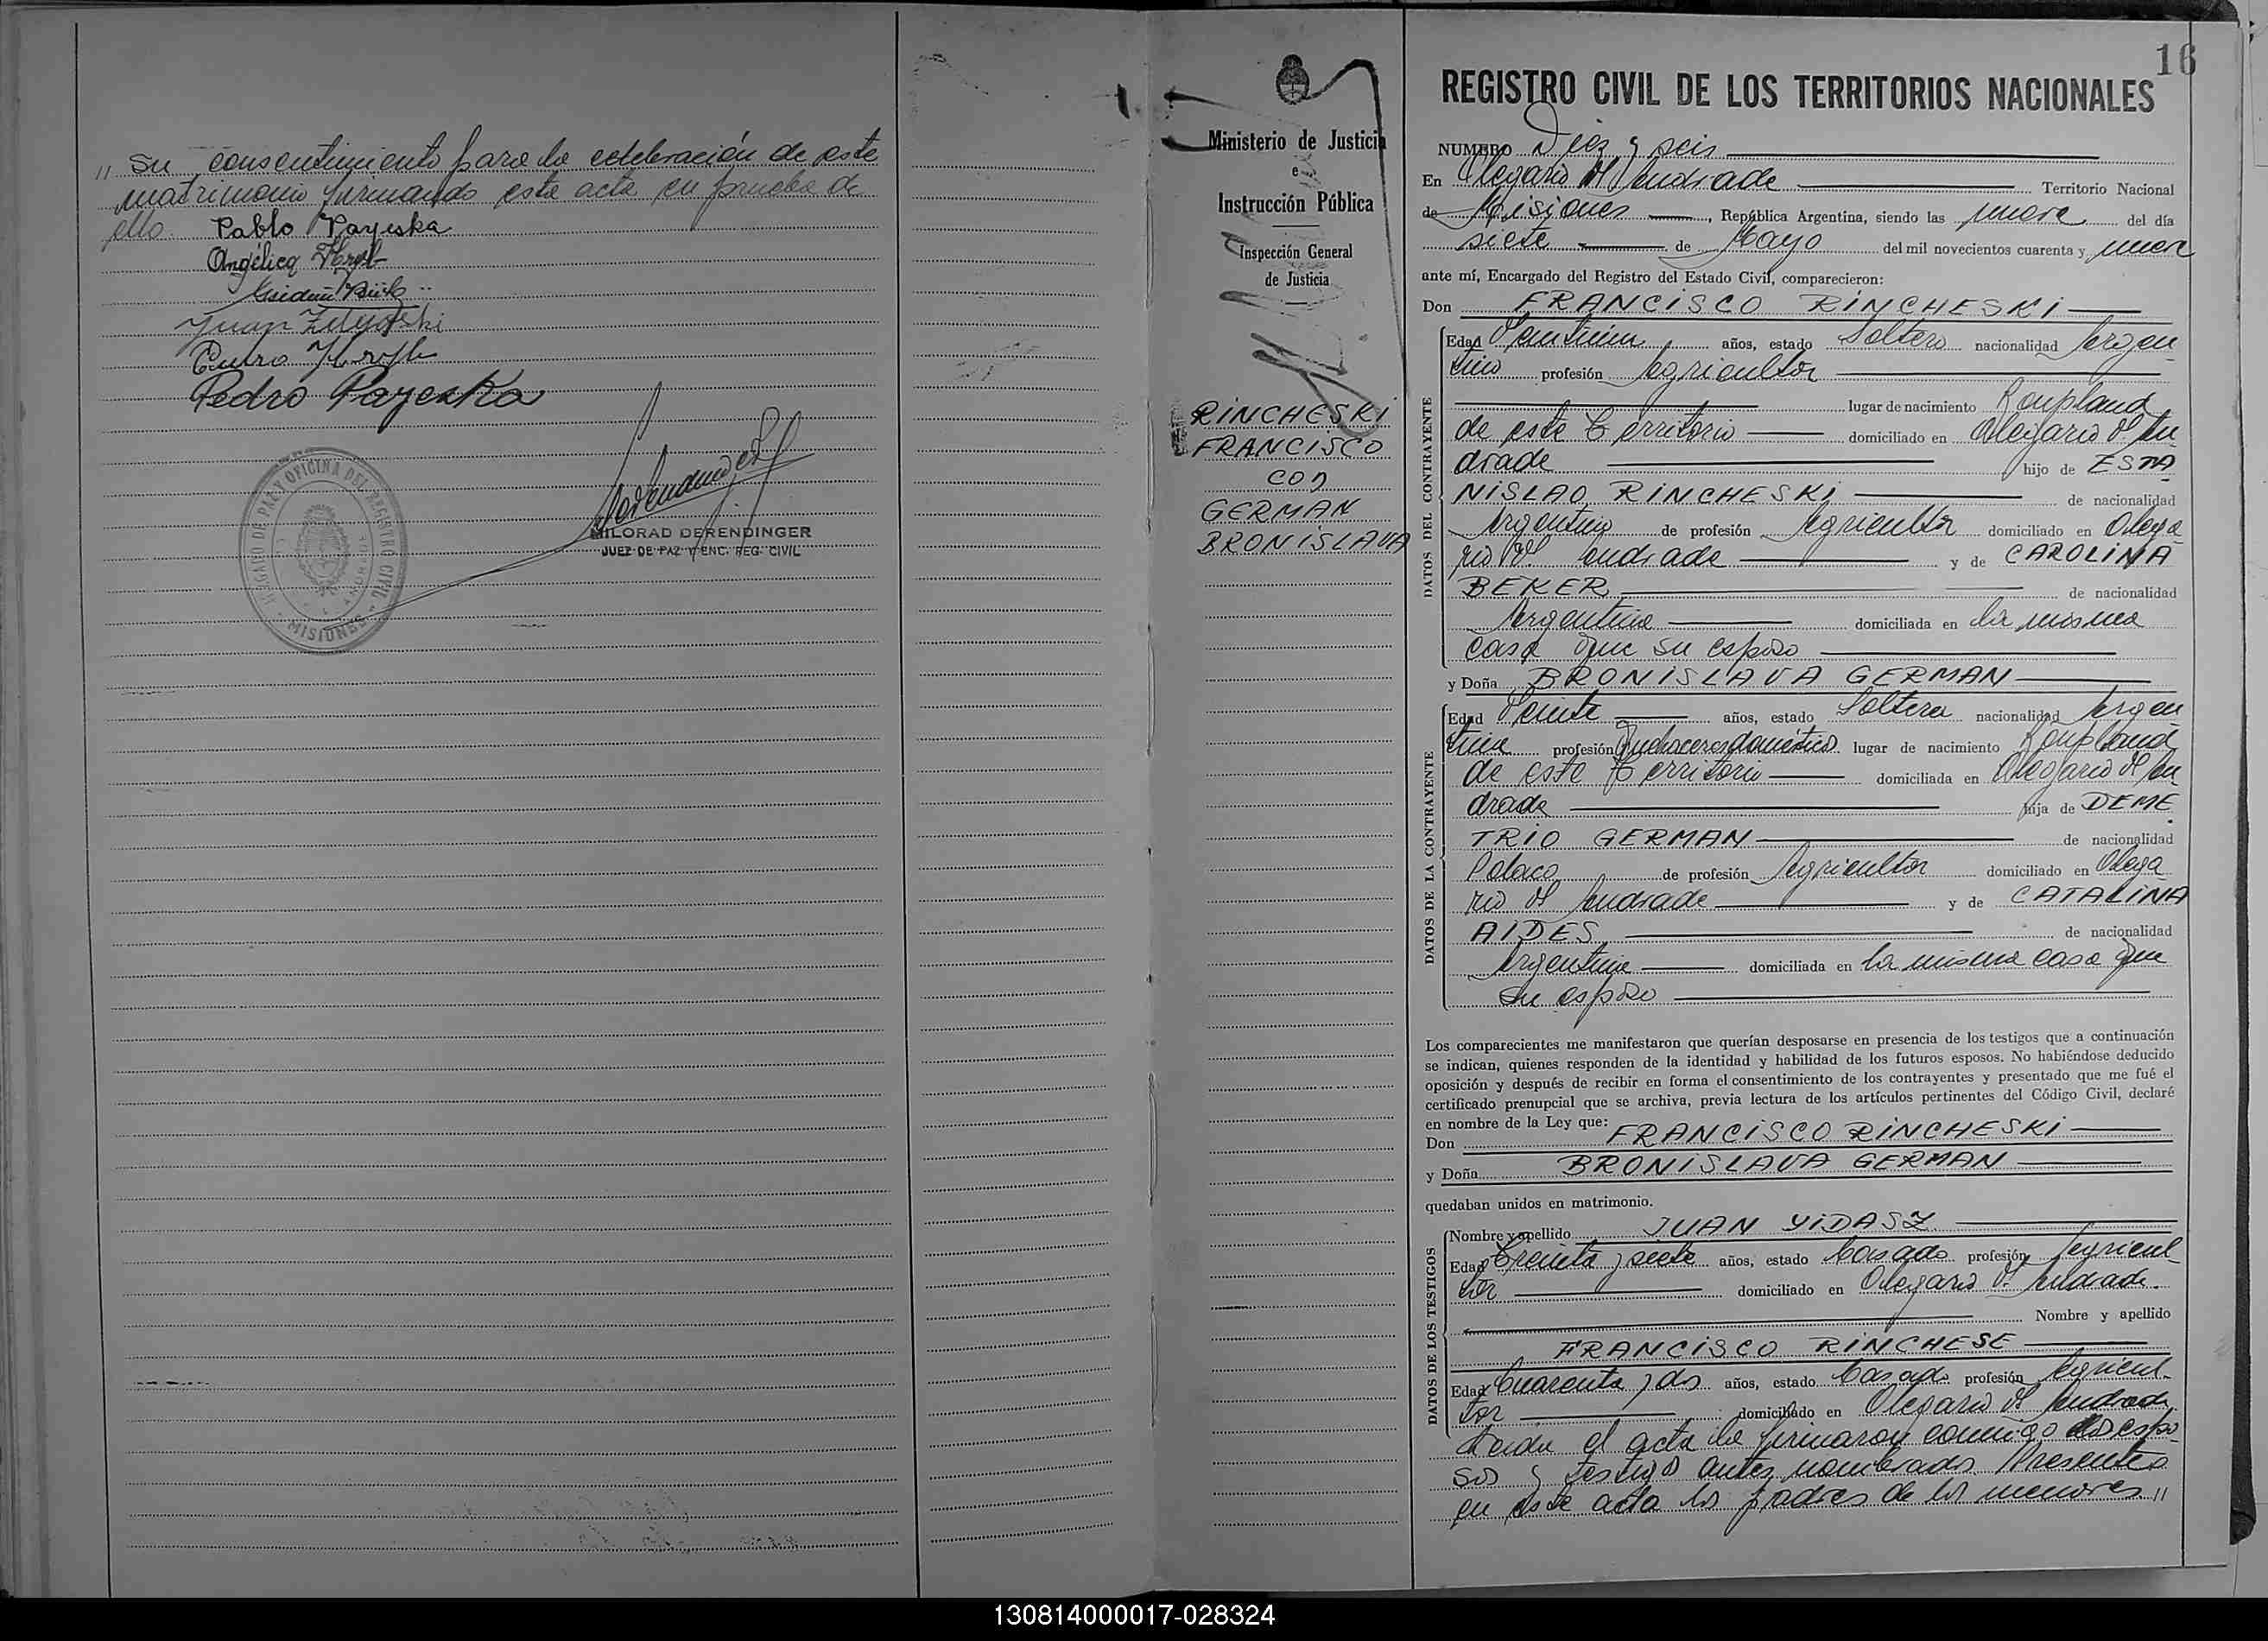 " su consentimiento para la celebración de este
matrimonio firmando esta acta en prueba de
ello.
Pablo Payeska
Angélica
Juan
Pedro Payeska
MILORAD DERENDINGER
JUEZ DE PAZ Y ENC. REG. CIVIL
JUZGADO DE PAZ Y OFICINA DEL REGISTRO CIVIL
MISIONES
Ministerio de Justicia
e
Instrucción Pública
Inspección General
de Justicia
RINCHESKI
FRANCISCO
CON
GERMAN
BRONISLAVA
16
REGISTRO CIVIL DE LOS TERRITORIOS NACIONALES
NUMERO Diez y seis
En Olegario V Andrade Territorio Nacional
de Misiones, República Argentina, siendo las nueve del día
siete de Mayo del mil novecientos cuarenta y nueve
ante mí, Encargado del Registro del Estado Civil, comparecieron:
Don FRANCISCO RINCHESKI
DATOS DEL CONTRAYENTE
Edad años, estado Soltero nacionalidad Argen
tino profesión Agricultor
lugar de nacimiento
de este Territorio domiciliado en Olegario V An
drade hijo de ESTA
NISLAO RINCHESKI de nacionalidad
Argentino de profesión Agricultor domiciliado en Olega
rio V. Andrade y de CAROLINA
BEKER de nacionalidad
Argentina domiciliada en la misma
casa que su esposo
y Doña BRONISLAVA GERMAN
DATOS DE LA CONTRAYENTE
Edad Veinte años, estado Soltera nacionalidad Argen
tina profesión Quehaceres domésticos lugar de nacimiento
de este Territorio domiciliada en Olegario V An
drade hija de DEME
TRIO GERMAN de nacionalidad
Polaco de profesión Agricultor domiciliado en Olega
rio V Andrade y de CATALINA
AIDES de nacionalidad
Argentina domiciliada en la misma casa que
su esposo
Los comparecientes me manifestaron que querían desposarse en presencia de los testigos que a continuación
se indican, quienes responden de la identidad y habilidad de los futuros esposos. No habiéndose deducido
oposición y después de recibir en forma el consentimiento de los contrayentes y presentado que me fué el
certificado prenupcial que se archiva, previa lectura de los artículos pertinentes del Código Civil, declaré
en nombre de la Ley que:
Don FRANCISCO RINCHESKI
y Doña BRONISLAVA GERMAN
quedaban unidos en matrimonio.
DATOS DE LOS TESTIGOS
Nombre y apellido JUAN YIDASZ
Edad Treinta y siete años, estado Casado profesión Agricul
tor domiciliado en Olegario V. Andrade.
Nombre y apellido
FRANCISCO RINCHESE
Edad Cuarenta y dos años, estado Casado profesión Agricul
tor domiciliado en Olegario V Andrade
Leída el acta la firmaron conmigo los espo
sos y testigos antes nombrados. Presentes
en este acta los padres de los menores "
130814000017-028324